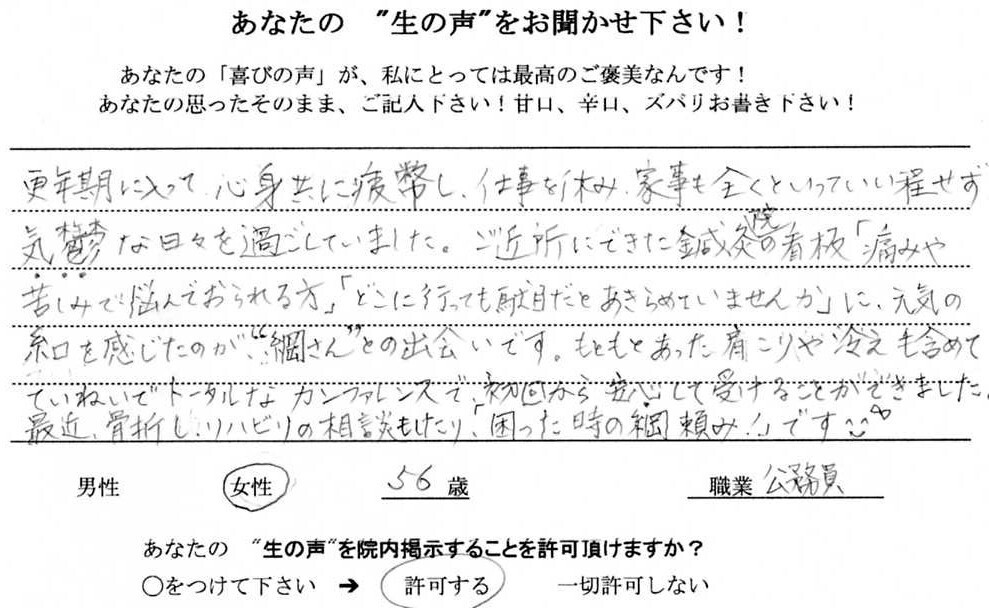 あなたの "生の声"をお聞かせ下さい！
あなたの「喜びの声」が、私にとっては最高のご褒美なんです！
あなたの思ったそのまま、ご記入下さい！甘口、辛口、ズバリお書き下さい！
更年期に入って、心身共に疲幣し、仕事を休み、家事も全くといっていい程せず
気鬱な日々を過ごしていました。ご近所にできた鍼灸院の看板「痛みや
苦しみで悩んでおられる方」「どこに行っても駄目だとあきらめていませんか」に、元気の
糸口を感じたのが、"綱さん"との出会いです。もともとあった肩こりや冷えも含めて
ていねいでトータルなカンファレンスで、初回から安心して受けることができました。
最近、骨折し、リハビリの相談もしたり、「困った時の綱頼み！」です
男性 女性 56歳 職業 公務員
あなたの "生の声"を院内掲示することを許可頂けますか？
○をつけて下さい ➔ 許可する 一切許可しない